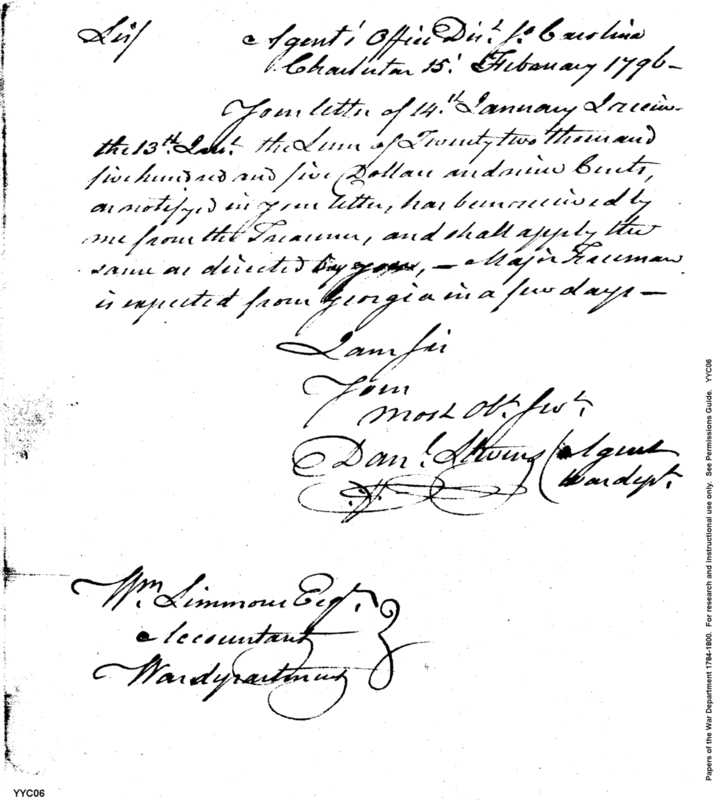 Sir/ Agent's Office Dist. So. Carolina
Charleston 15t. February 1796—
Your letter of 14th. January I receiv-
the 13th. Inst. the Sum of Twenty two thousand
five hundred and five Dollars and nine Cents,
as notifyed in your letter, has been received by
me from the Treasurer, and shall apply the
same as directed by you, — Major Freeman
is expected from Georgia in a few days —
I am Sir
Your
most Obt. Servt.
Danl. Stevens (Agent
War dept.
Wm. Simmons Esqr.
Accountant
War department
Papers of the War Department 1784-1800. For research and instructional use only. See Permissions Guide. YYC06
YYC06